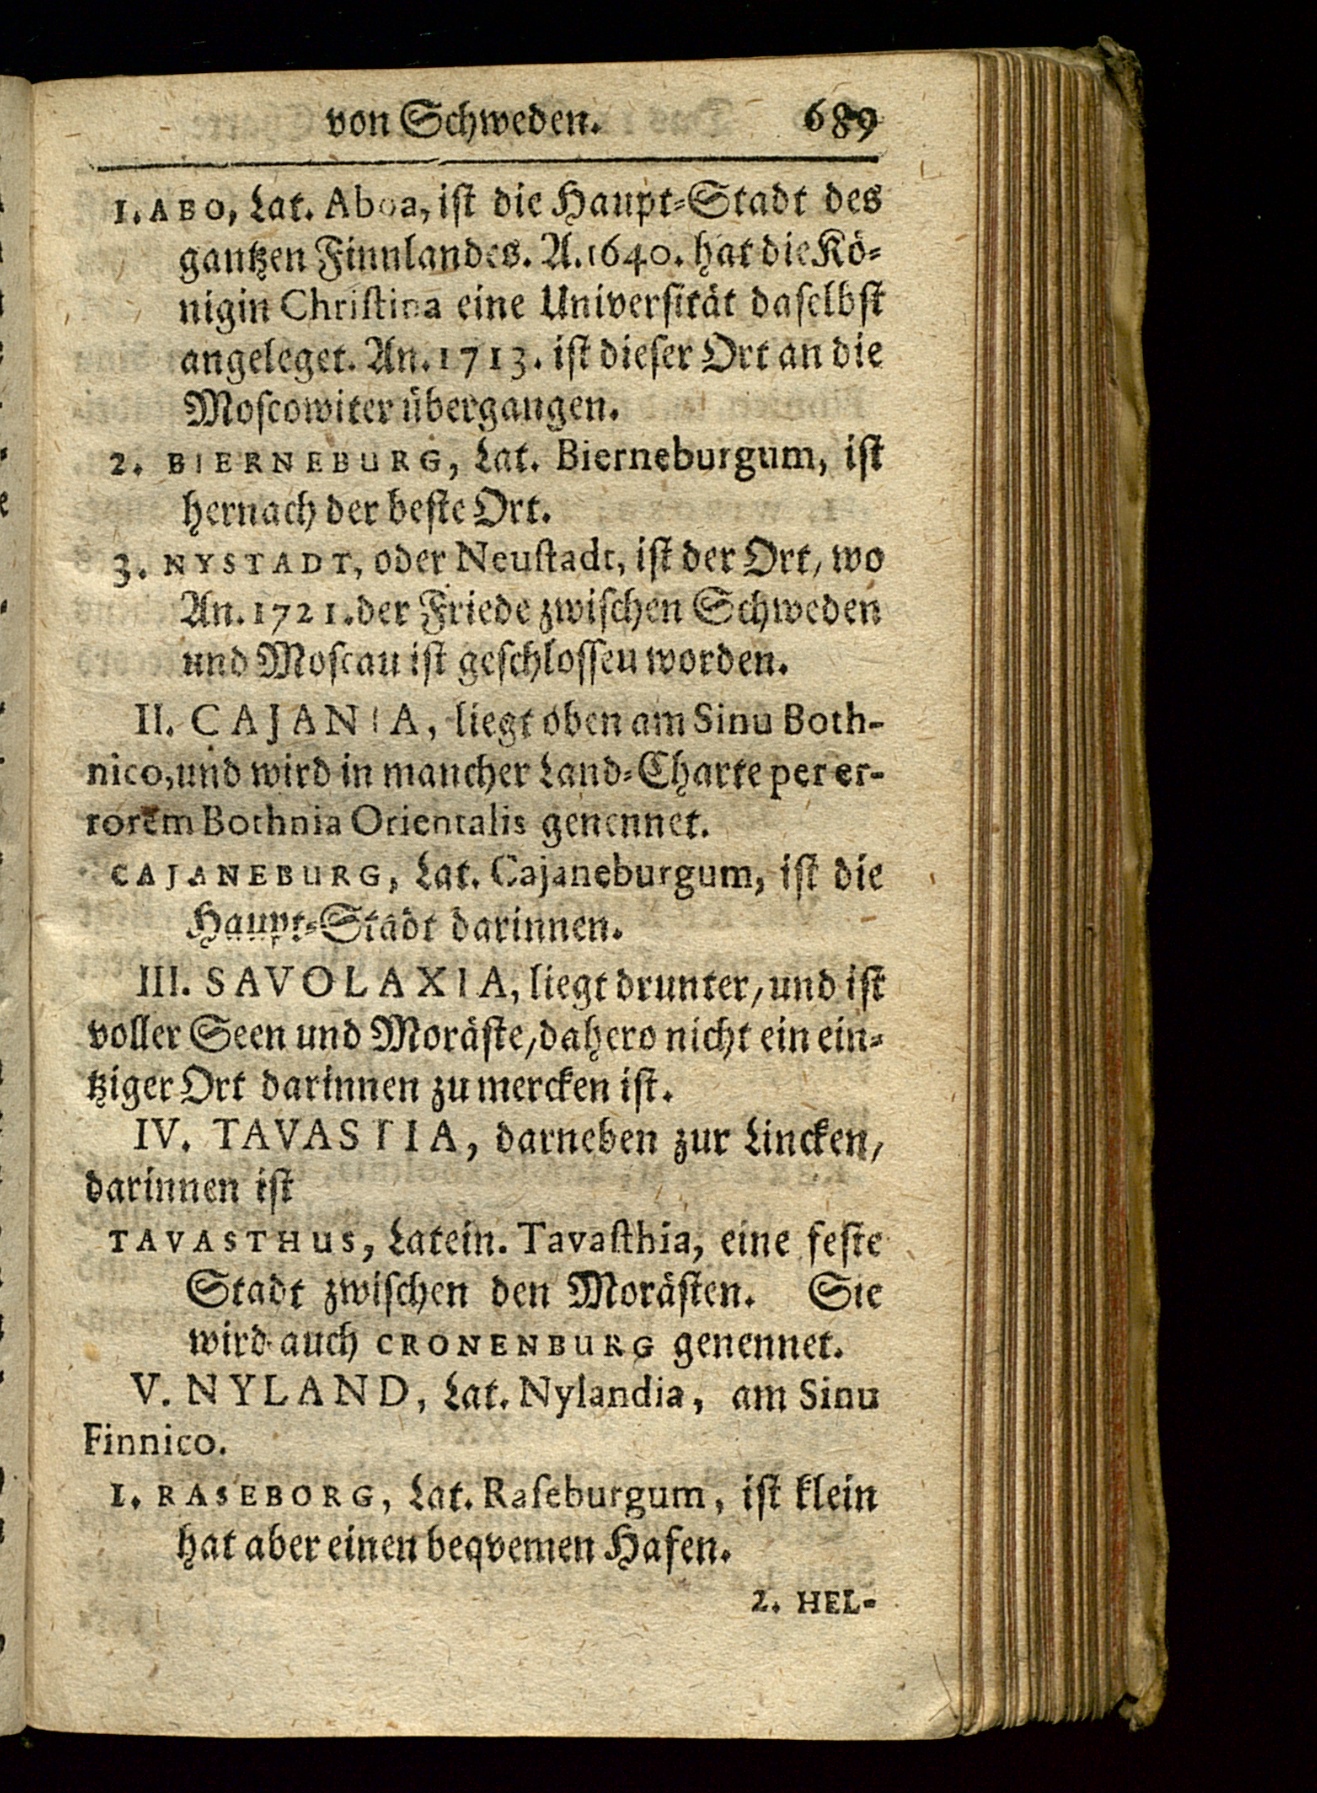 von Schweden. 689
1. ABO, Lat. Aboa, ist die Haupt-Stadt des
gantzen Finnlandes. A. 1640. hat die Kö-
nigin Christina eine Universität daselbst
angeleget. An. 1713. ist dieser Ort an die
Moscowiter übergangen.
2. BIERNEBURG, Lat. Bierneburgum, ist
hernach der beste Ort.
3. NYSTADT, oder Neustadt, ist der Ort, wo
An. 1721. der Friede zwischen Schweden
und Moscau ist geschlossen worden.
II. CAJANIA, liegt oben am Sinu Both-
nico, und wird in mancher Land-Charte per er-
rorem Bothnia Orientalis genennet.
CAJANEBURG, Lat. Cajaneburgum, ist die
Haupt-Stadt darinnen.
III. SAVOLAXIA, liegt drunter, und ist
voller Seen und Moräste, dahero nicht ein ein-
tziger Ort darinnen zu mercken ist.
IV. TAVASTIA, darneben zur Lincken,
darinnen ist
TAVASTHUS, Latein. Tavasthia, eine feste
Stadt zwischen den Morästen. Sie
wird auch CRONENBURG genennet.
V. NYLAND, Lat. Nylandia, am Sinu
Finnico.
1. RASEBORG, Lat. Raseburgum, ist klein
hat aber einen beqvemen Hafen.
2. HEL-